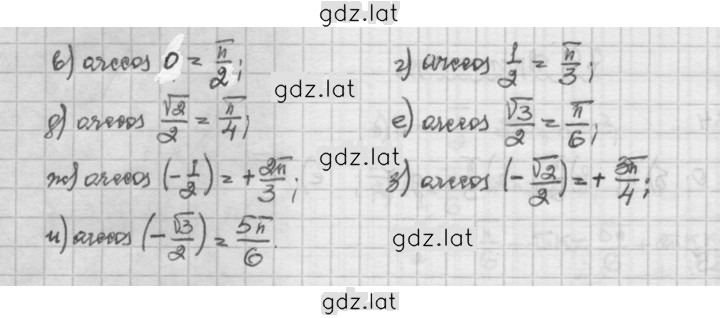 gdz.lat
в) arccos 0 = π/2; г) arccos 1/2 = π/3;
gdz.lat
д) arccos √2/2 = π/4; е) arccos √3/2 = π/6;
gdz.lat
ж) arccos (-1/2) = +2π/3; з) arccos (-√2/2) = + 3π/4;
и) arccos (-√3/2) = 5π/6.
gdz.lat
gdz.lat